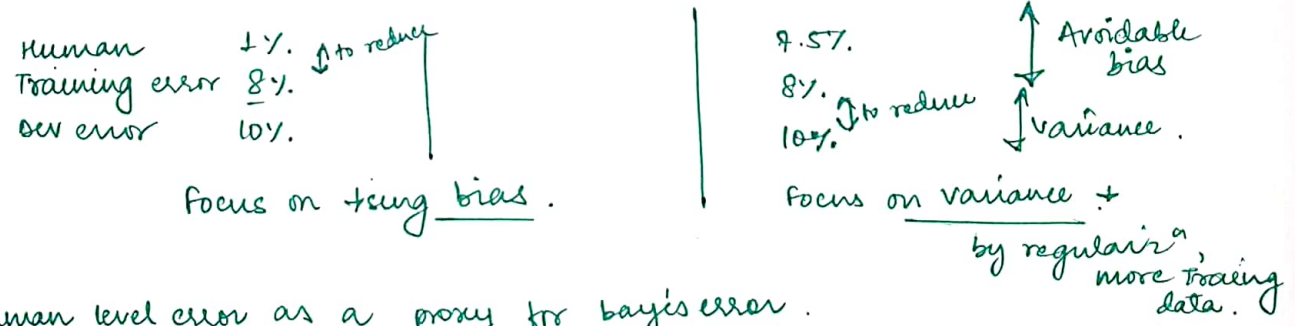 Human 1%. ↕ to reduce
Training error 8%.
Dev error 10%.
Focus on ↓sing bias.
7.5%.
8%.
10%. ↕ to reduce
Avoidable bias
variance.
Focus on variance ↓
by regulaizⁿ,
more Traeing
data.
uman level error as a proxy for bayis error.